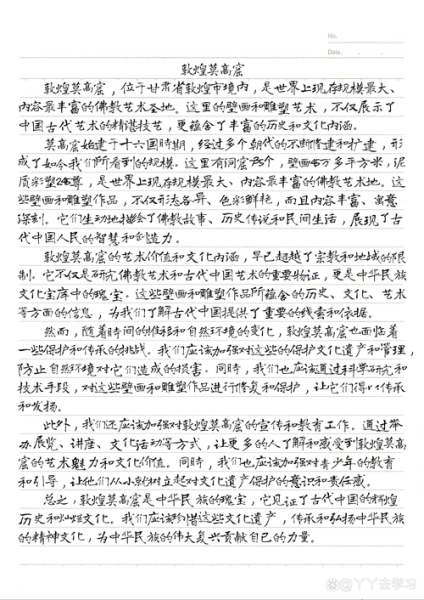 No.
Date.
敦煌莫高窟
敦煌莫高窟，位于甘肃省敦煌市境内，是世界上现存规模最大、
内容最丰富的佛教艺术圣地。这里的壁画和雕塑艺术，不仅展示了
中国古代艺术的精湛技艺，更蕴含了丰富的历史和文化内涵。
莫高窟始建于十六国时期，经过多个朝代的不断修建和扩建，形
成了如今我们所看到的规模。这里有洞窟735个，壁画4.5万多平方米，泥
质彩塑2415尊，是世界上现存规模最大、内容最丰富的佛教艺术地。这
些壁画和雕塑作品，不仅形态各异、色彩鲜艳，而且内容丰富、寓意
深刻。它们生动地描绘了佛教故事、历史传说和民间生活，展现了古
代中国人民的智慧和创造力。
敦煌莫高窟的艺术价值和文化内涵，早已超越了宗教和地域的限
制。它不仅是研究佛教艺术和古代中国艺术的重要物证，更是中华民族
文化宝库中的瑰宝。这些壁画和雕塑作品所蕴含的历史、文化、艺术
等方面的信息，为我们了解古代中国提供了重要的线索和依据。
然而，随着时间的推移和自然环境的变化，敦煌莫高窟也面临着
一些保护和传承的挑战。我们应该加强对这些的保护文化遗产和管理，
防止自然环境对它们造成的损害。同时，我们也应该通过科学研究和
技术手段，对这些壁画和雕塑作品进行修复和保护，让它们得以传承
和发扬。
此外，我们还应该加强对敦煌莫高窟的宣传和教育工作。通过举
办展览、讲座、文化活动等方式，让更多的人了解和感受到敦煌莫高
窟的艺术魅力和文化价值。同时，我们也应该加强对青少年的教育
和引导，让他们从小就树立起对文化遗产保护的意识和责任感。
总之，敦煌莫高窟是中华民族的瑰宝，它见证了古代中国的辉煌
历史和灿烂文化。我们应该珍惜这些文化遗产，传承和弘扬中华民族
的精神文化，为中华民族的伟大复兴贡献自己的力量。
@丫丫去学习